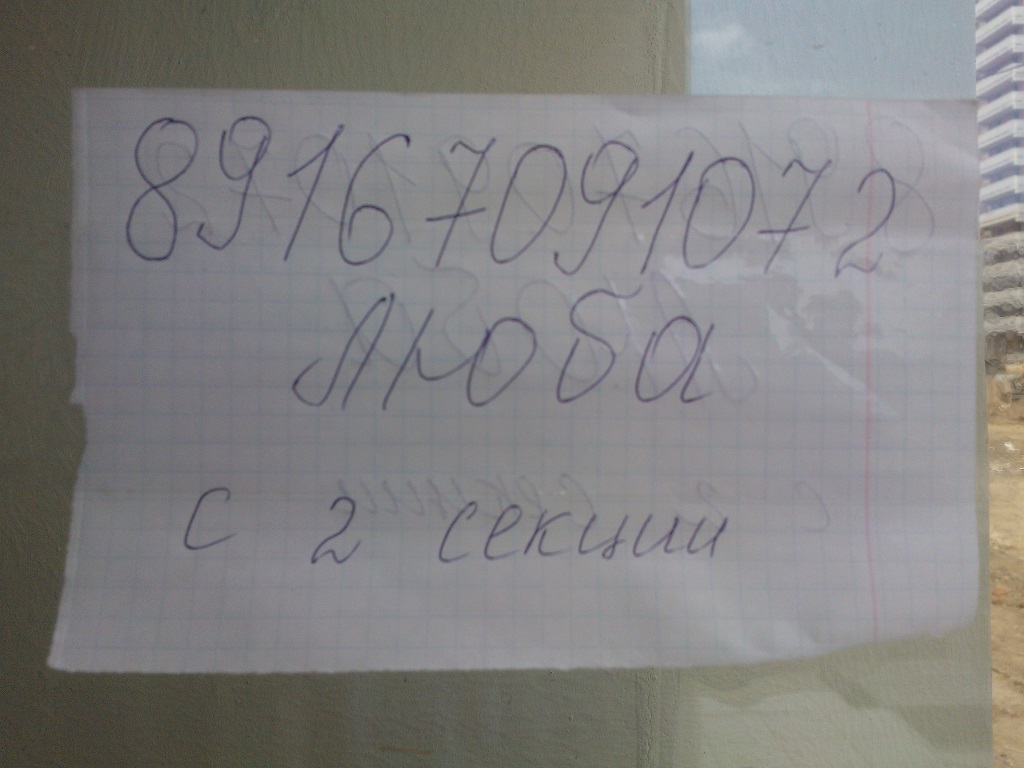 89167091072
Люба
с 2 секции